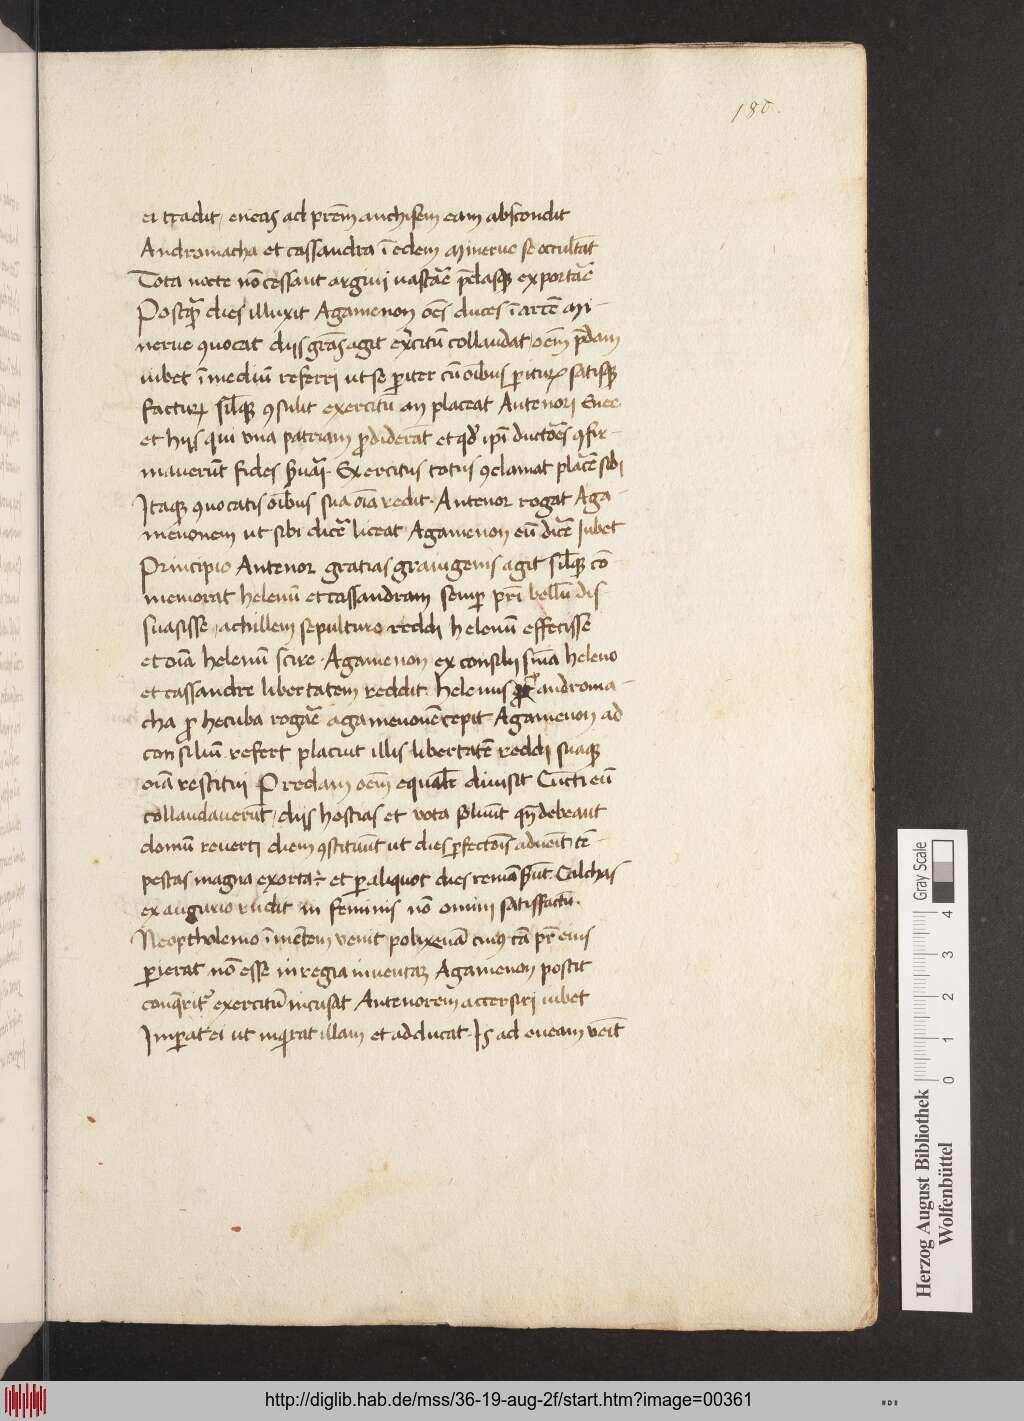 180.
ei tradit / eneas ad prēm anchisem eam abscondit
Andromacha et cassandra ī edem minerue se occultāt
Tota nocte nō cessant argiui uastāre p̄dasqꝫ exportāre
Postqᷓ dies illuxit Agamenon oēs duces ī arcē Mi-
nerue ꝯuocat diis grās agit exercitū collaudat / oēm p̄dam
iubet ī mediū referri ut se ꝑiter cū oībus ꝑtituꝝ satisqꝫ
facturꝝ silꝭqꝫ ꝯsulit exercitū an placeat Antenori Enee
et hijs qui vna patriam ꝓdiderāt et qd̓ ipī ductores ꝯfir-
mauerūt fides s̓uari. Exercitus totus ꝯclamat placēre sibi
Itaqꝫ ꝯuocatis oībus sua oīa redit. Antenor rogat Aga-
menonem ut sibi dicēre liceat Agamenon eū dicēre Iubet
Principio Antenor gratias graiugenis agit silꝭqꝫ cō
memorat helenū et cassandram semꝑ pri bellū dis
suasisse / achillem sepulturo reddi helenū effecisse
et oīa helenū scire. Agamenon ex consilij snīa heleno
et cassandre libertatem reddit. helenus ꝓ androma-
cha ꝓ hecuba rogāre agamenonē cepit Agamenon ad
consiliū refert placuit illis libertatē reddi suaqꝫ
oīa restitui Predam oēm equalr̄ diuisit Cūcti eū
collaudauerūt / diis hostias et vota soluūt qn̄ debeant
domū reuerti diem ꝯstituūt ut dies ꝑfectōis aduēit tē-
pestas magna exorta ÷ et ꝑ aliquot dies remāserūt. Calchas
ex augurio rūdit in feminis nō omini satisfactū.
Neoptholemo ī mētem venit polixenā cuiꝰ cā pr̄ eius
ꝑierat nō esse in regia inuentaꝫ Agamenon poscit
conq̄rit᷑ exercitū incusat Antenorem accersiri iubet
Imꝑat ei ut inq̄rat illam et adducat. Is ad eneam vēit
Gray Scale
0 1 2 3 4
Herzog August Bibliothek
Wolfenbüttel
http://diglib.hab.de/mss/36-19-aug-2f/start.htm?image=00361